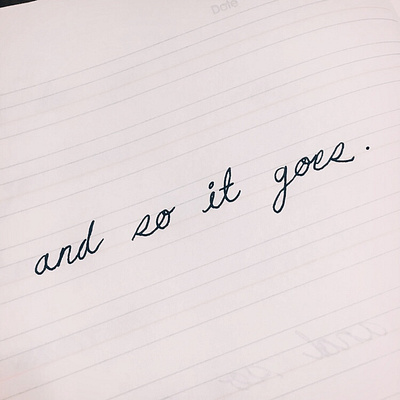 Date
and so it goes.